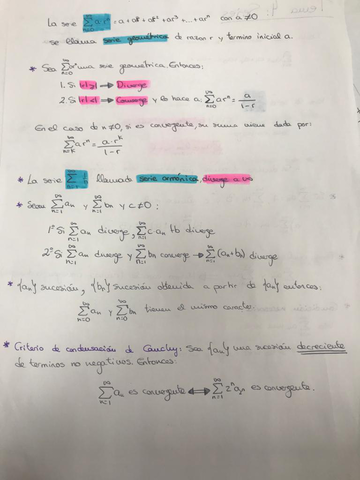 La serie ∑ a·rⁿ = a + ar + ar² + ar³ + ... + arⁿ con a ≠ 0
se llama serie geométrica de razon r y termino inicial a.
* Sea ∑ rⁿ una serie geometrica. Entonces:
n=0
1. Si |r|≥1 → Diverge
2. Si |r|<1 → Converge y lo hace a: ∑ arⁿ = a/(1-r)
En el caso de n≠0, si es convergente, su suma viene dada por:
∑ arⁿ = a·rᵏ/(1-r)
n=k
* La serie ∑ 1/n llamada serie armónica, diverge a +∞
* Sean ∑ aₙ y ∑ bₙ y c≠0:
1º Si ∑ aₙ diverge, ∑ c·aₙ tb diverge
2º Si ∑ aₙ diverge y ∑ bₙ converge → ∑ (aₙ+bₙ) diverge
* {aₙ} sucesión, {bₙ} sucesión obtenida a partir de {aₙ} entonces:
∑ aₙ y ∑ bₙ tienen el mismo caracter.
* Criterio de condensación de Cauchy: Sea {aₙ} una sucesión decreciente
de terminos no negativos. Entonces:
∑ aₙ es convergente ⟺ ∑ 2ⁿa₂ₙ es convergente.